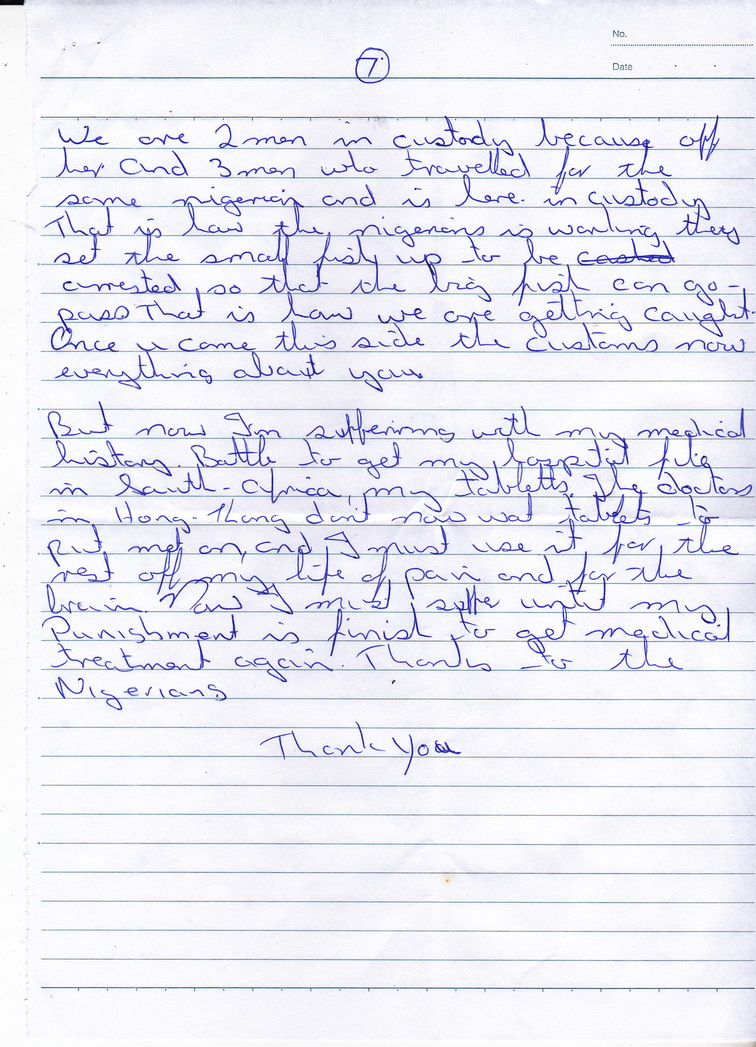 No.
Date
7
We are 2 men in custody because off
her and 3 men who travelled for the
same nigerian and is here in custody
That is how the nigerians is working they
set the small fish up to be
arrested, so that the big fish can go-
pass That is how we are getting caught.
Once u come this side the customs now
everything about you
But now I'm suffering with my medical
history. Battle to get my hospital file
in South-Africa, my tabletts. The doctors
in Hong-Khong don't now wat tablets to
put me on, and I must use it for the
rest off my life of pain and for the
brain. Now I must suffe until my
Punishment is finish to get medical
treatment again. Thanks to the
Nigerians
Thank You